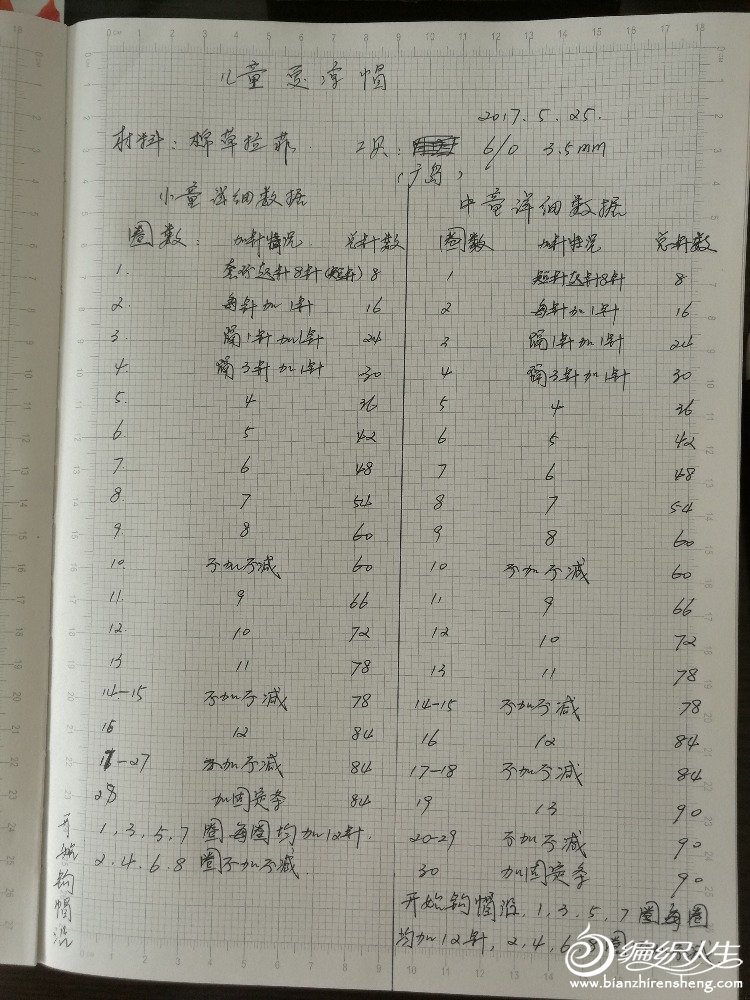 儿童夏凉帽
2017.5.25.
材料：棉草拉菲 工具： 6/0 3.5mm
(广岛)
小童详细数据
圈数： 加针情况 总针数
1. 套环起针8针(短针) 8
2. 每针加1针 16
3. 隔1针加1针 24
4. 隔3针加1针 30
5 4 36
6 5 42
7 6 48
8 7 54
9 8 60
10. 不加不减 60
11. 9 66
12 10 72
13 11 78
14-15 不加不减 78
16 12 84
17-27 不加不减 84
28 加固 条 84
开始钩帽沿
1,3,5,7圈每圈均加12针.
2,4,6,8圈不加不减
中童详细数据
圈数 加针情况 总针数
1 短针起针8针 8
2 每针加1针 16
3 隔1针加1针 24
4 隔3针加1针 30
5 4 36
6 5 42
7 6 48
8 7 54
9 8 60
10 不加不减 60
11 9 66
12 10 72
13 11 78
14-15 不加不减 78
16 12 84
17-18 不加不减 84
19 13 90
20-29 不加不减 90
30 加固 条 90
开始钩帽沿,1,3,5,7圈每圈
均加12针,2,4,6,8圈
编织人生
www.bianzhirensheng.com